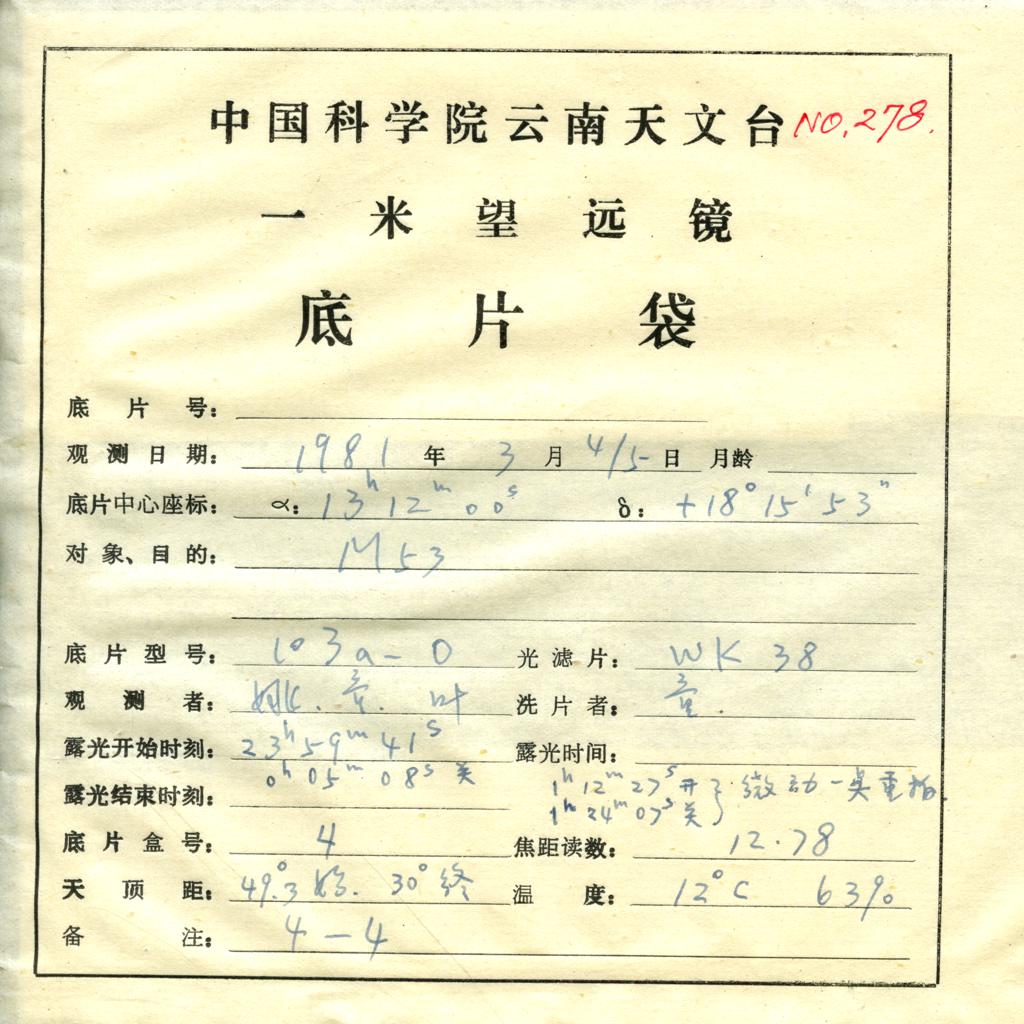 中国科学院云南天文台 NO.278.
一米望远镜
底片袋
底片号:
观测日期: 1981年3月4/5日 月龄
底片中心座标: α: 13h12m00s δ: +18°15′53″
对象、目的: M53
底片型号: 103a-O 光滤片: WK 38
观测者: 姚. 童. 叶 洗片者: 童.
露光开始时刻: 23h59m41s 露光时间:
0h05m08s关
露光结束时刻: 1h12m27s开 } 微动一 重拍.
1h24m07s关
底片盒号: 4 焦距读数: 12.78
天顶距: 49°.3始. 30°终 温度: 12°C 63%
备注: 4-4